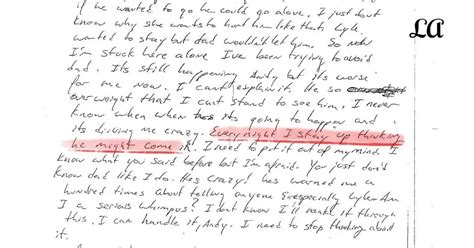 if he wanted to go he could go alone. I just dont
know why she wants to hurt him like that. Lyle
wanted to stay but dad wouldn't let him. So now
I'm stuck here alone I've been trying to avoid
dad. Its still happening Andy but its worse
for me now. I can't explain it. He so
overweight that I cant stand to see him. I never
know when when its going to happen and
its driving me crazy. Every night I stay up thinking
he might come in. I need to put it out of my mind. I
know what you said before but I'm afraid. You just don't
know dad like I do. Hes crazy! hes warned me a
hundred times about telling anyone Exespecially Lyle. Am
I a serious whimpus? I dont know I'll make it through
this. I can handle it, Andy. I need to stop thinking about
it.
LA